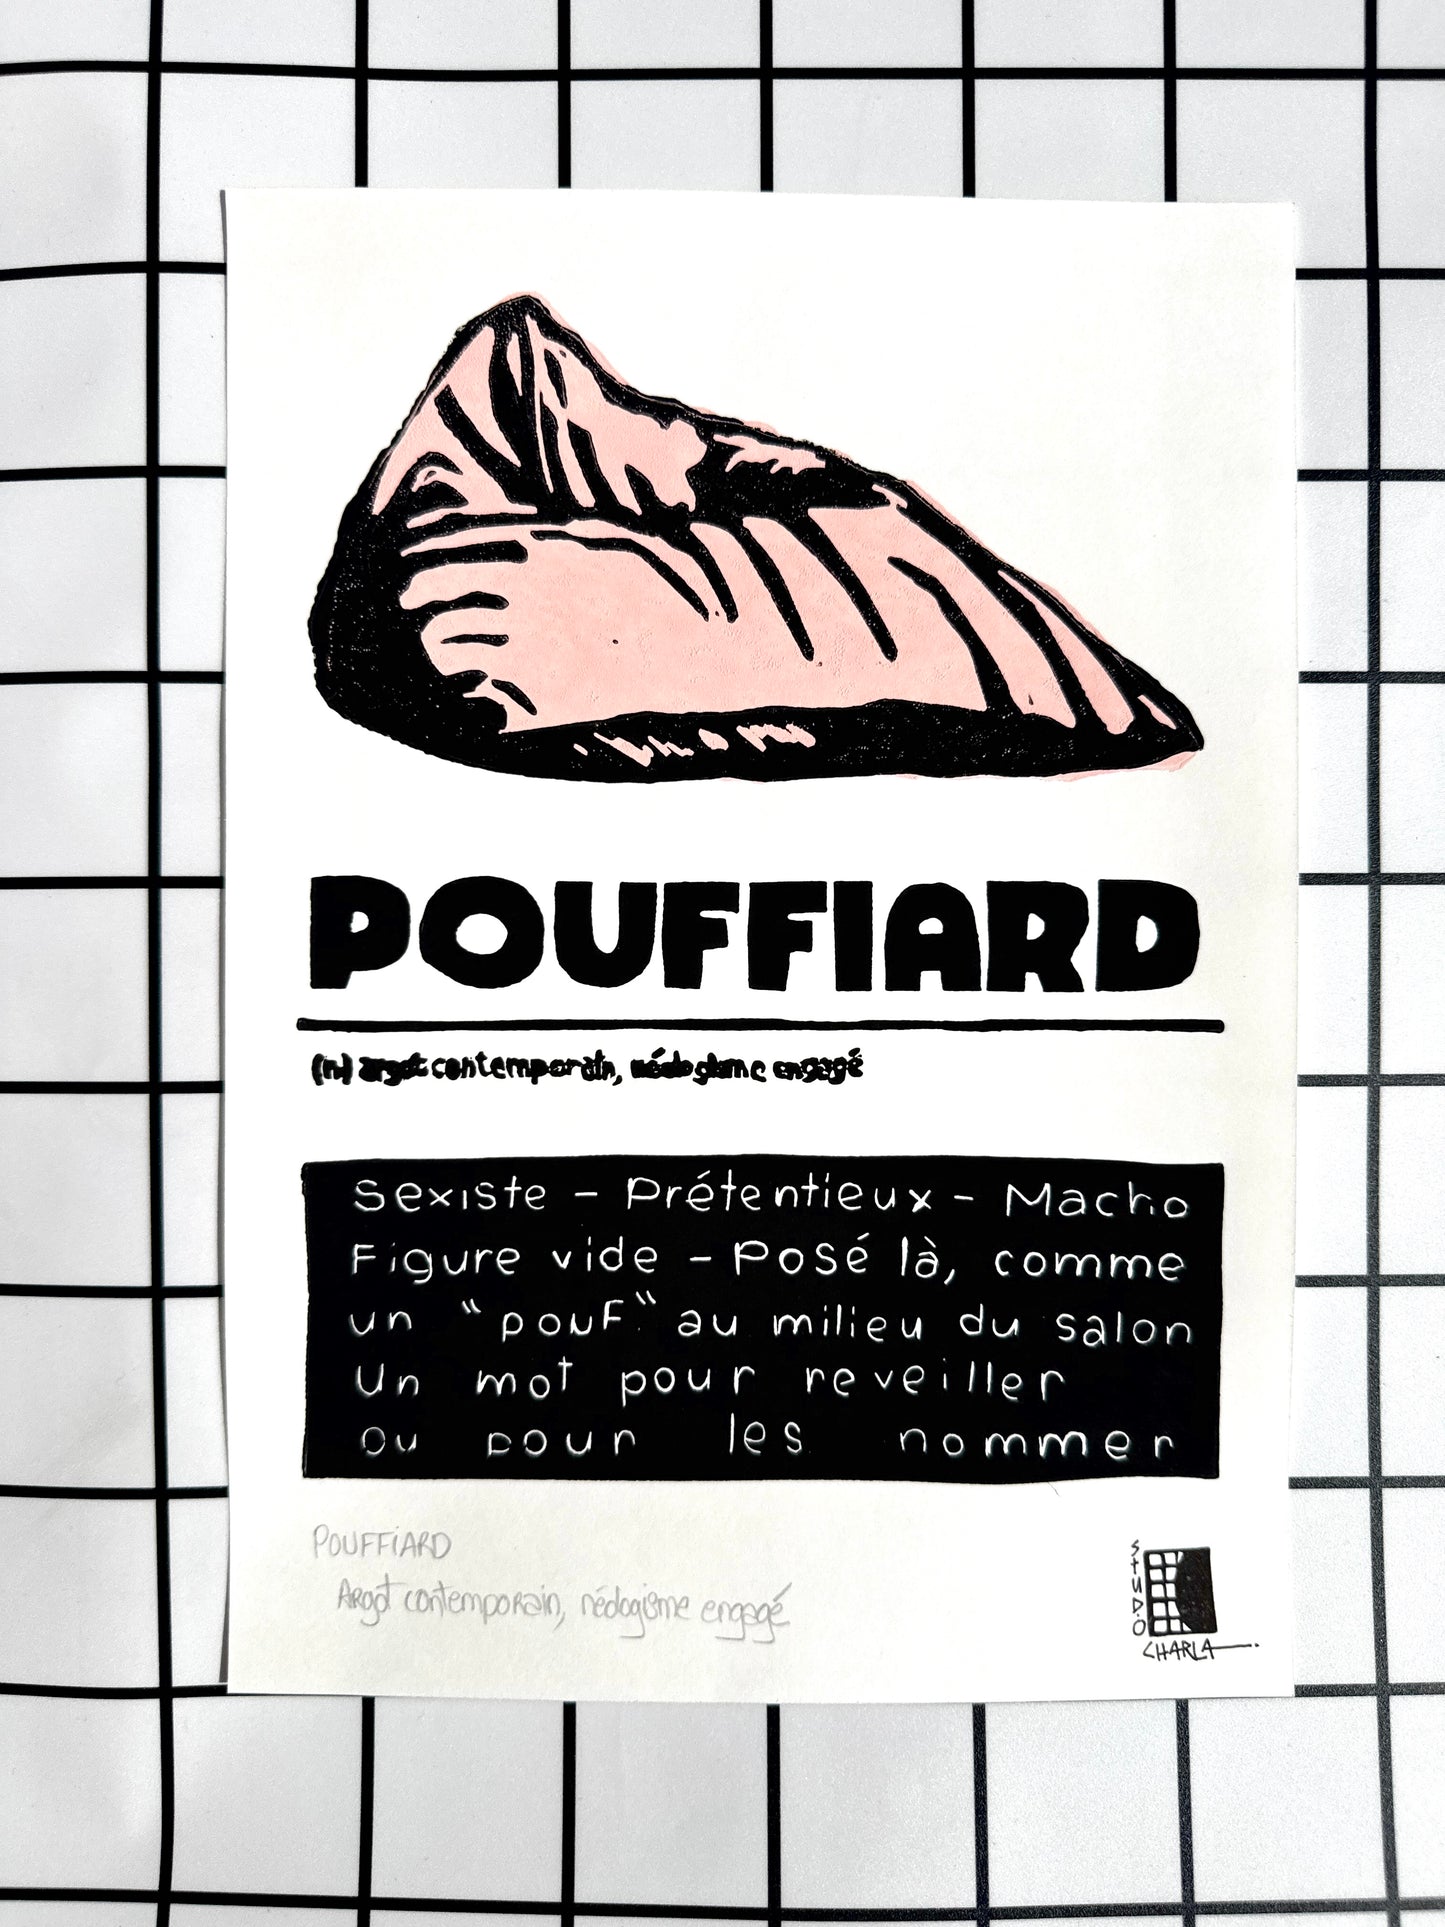 POUFFIARD
(n) argot contemporain, néologisme engagé
Sexiste - Prétentieux - Macho
Figure vide - Posé là, comme
un "pouf" au milieu du salon
Un mot pour reveiller
ou pour les nommer
POUFFIARD
Argot contemporain, néologisme engagé
STUDIO
CHARLA